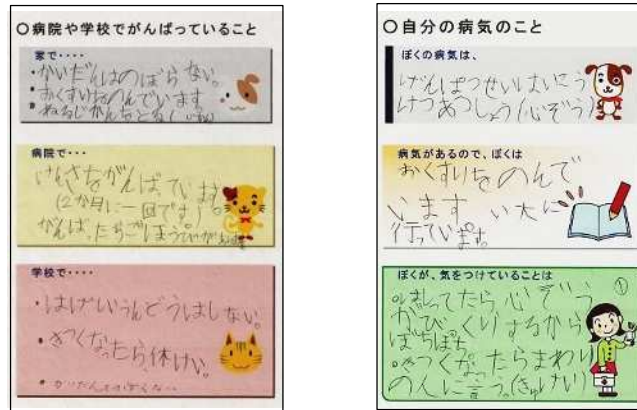 ○病院や学校でがんばっていること
家で‥‥
・かいだんはのぼらない。
・おくすりをのんでいます。
病院で‥‥
けんさをがんばています。
(2か月に一回です)
がんばったらごほうびが
学校で‥‥
・はげしいうんどうはしない。
・きつくなったら、休けい。
・かいだんをのぼらない
○自分の病気のこと
ぼくの病気は、
げんぱつせいはいこう
けつあつしょう(心ぞう)
病気があるので、ぼくは
おくすりをのんで
います
行っています。
ぼくが、気をつけていることは
はしってたら心ぞう ①
がびっくりするから
ぼちぼち
・きつくなったらまわり
の人に言う。(きゅけい)